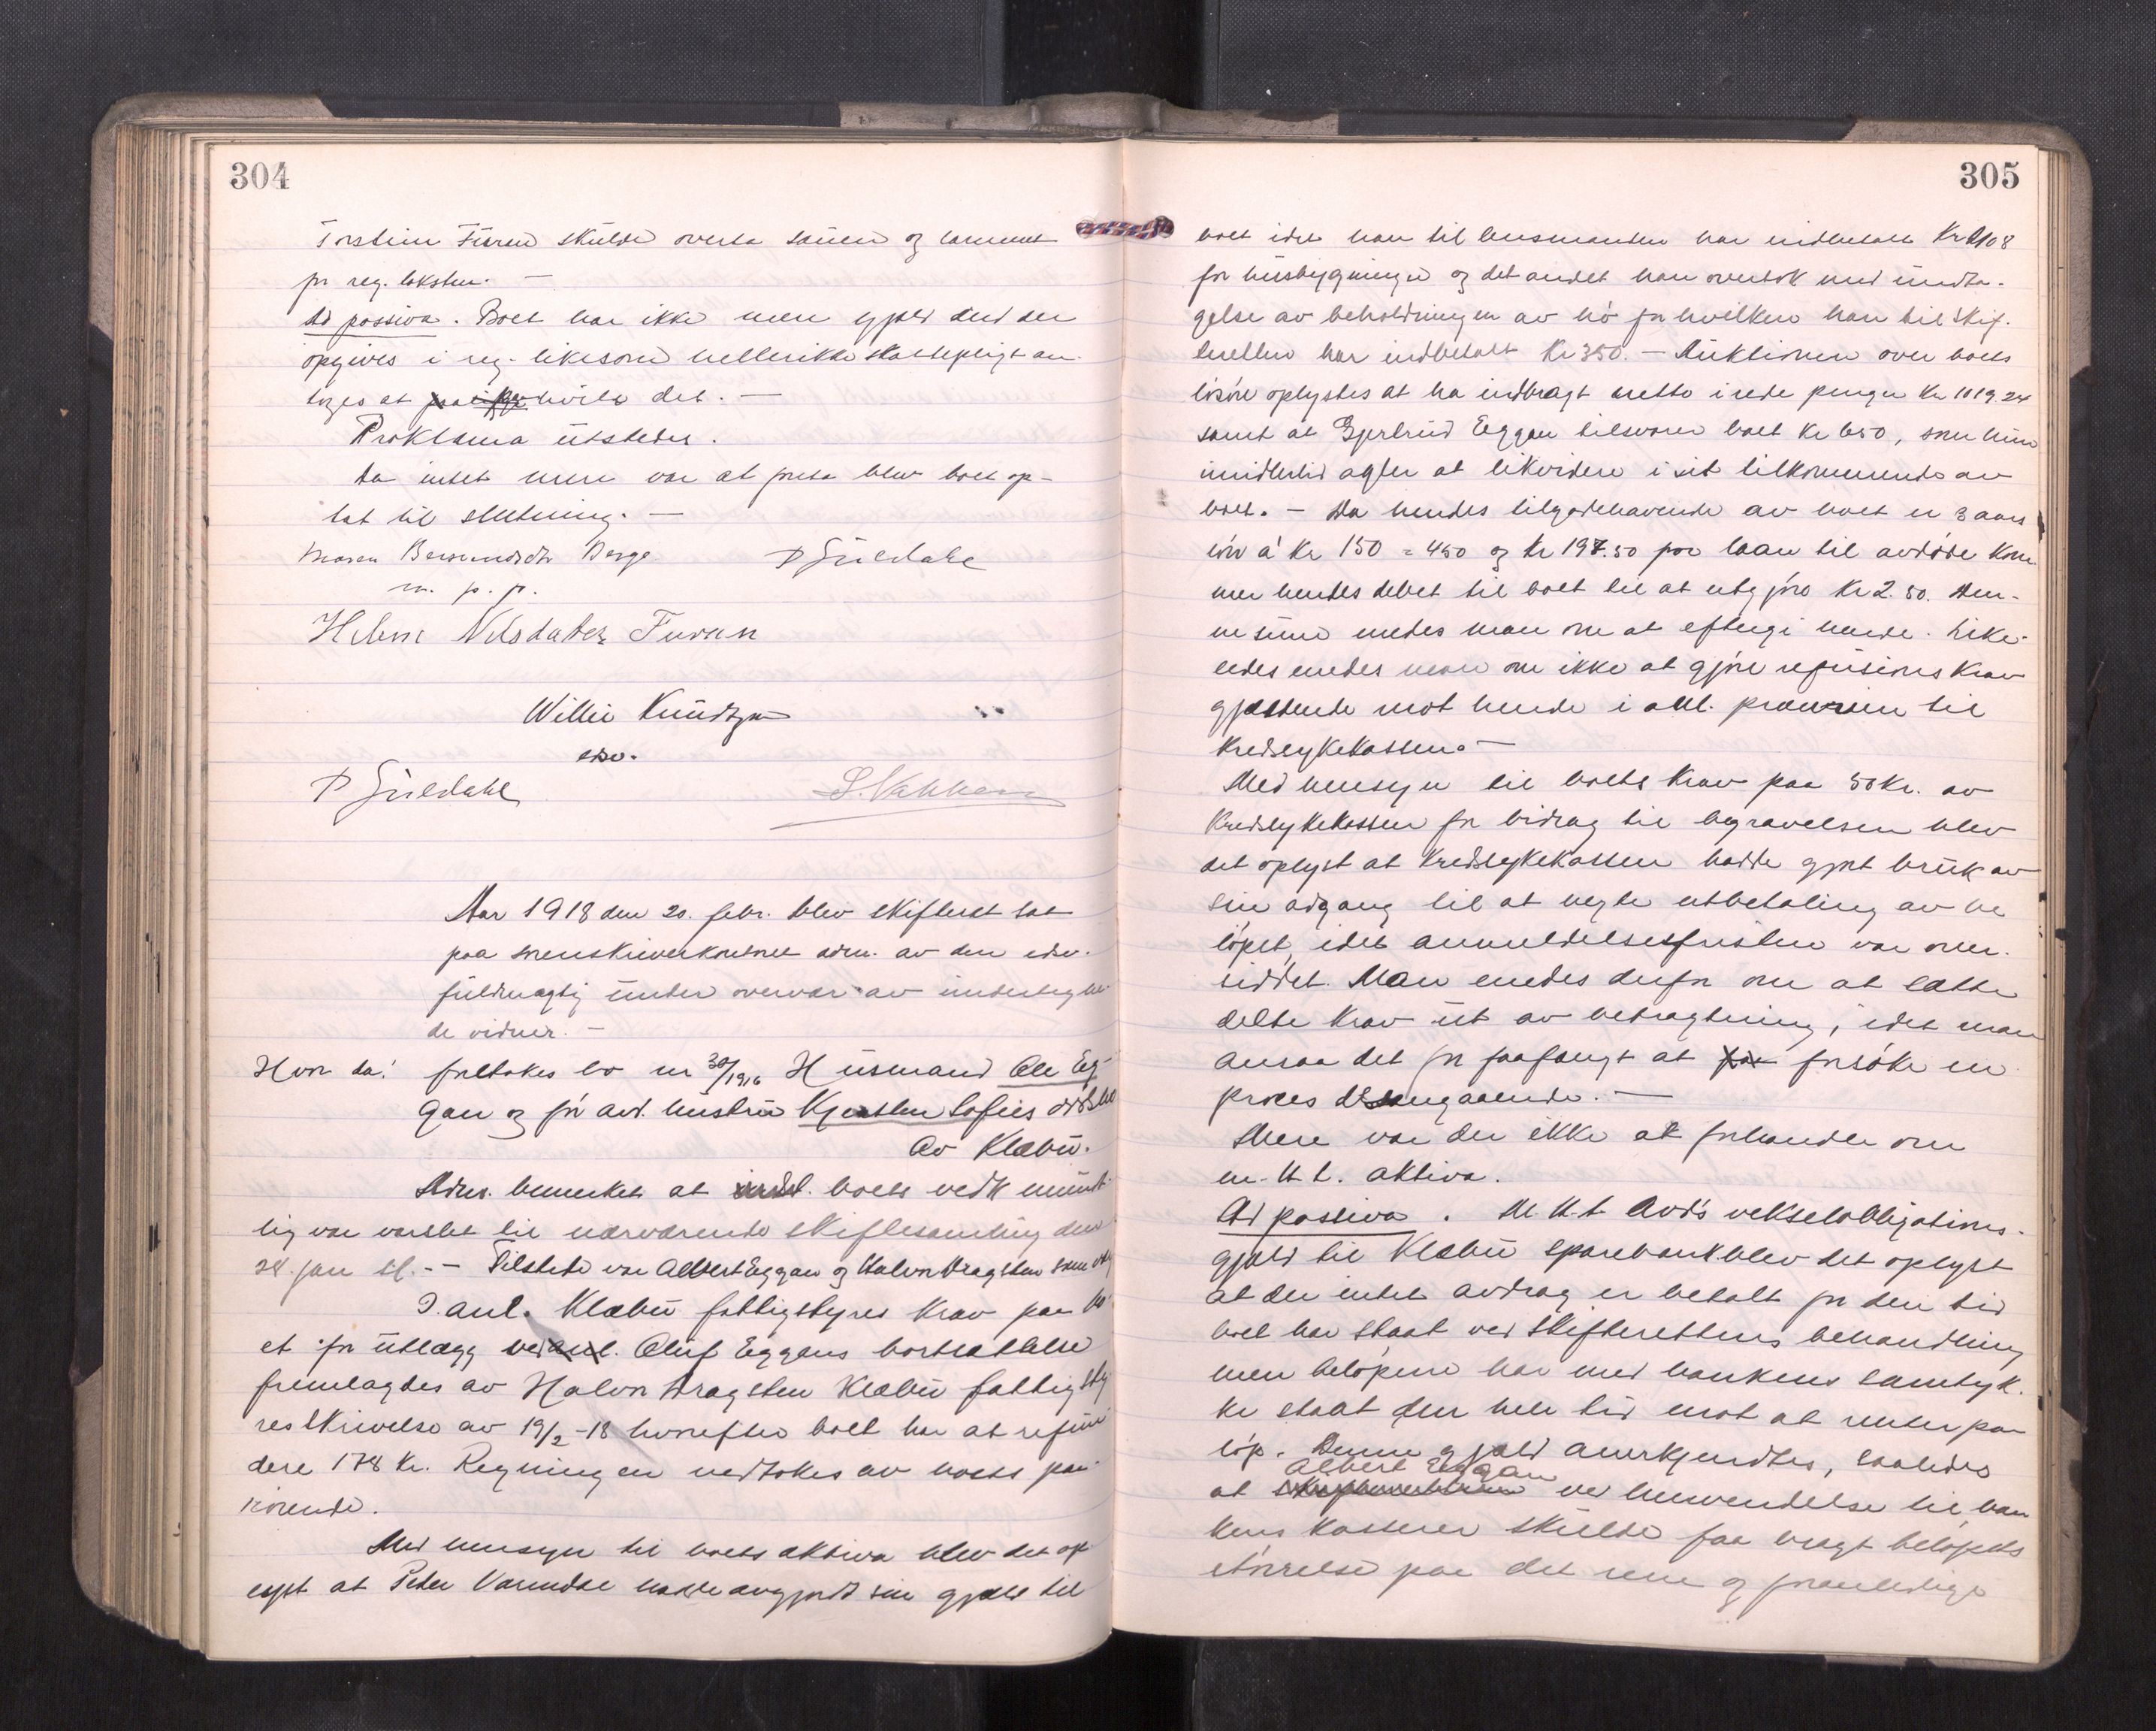 304
Torstein Furen skulde overta sauen og lammet
pr reg. taksten. —
Ad passiva. Boet har ikke mere gjæld end der
opgives i reg. likesom hellerikke skattepligt an-
tages at paahvile det. —
Proklama utstedes.
Da intet mere var at foreta blev boet op-
tat til slutning. —
Maren Bersvendsdtr Berge
P Guldahl
m. p. p.
Helene Nilsdatter Furan
Willie Knudtzon
edsv.
P Guldahl
Aar 1918 den 20. febr. blev skifteret sat
paa sorenskriverkontoret adm. av den edsv.
fuldmægtig under overvær av undertegne-
de vidner. —
Hvor da: foretokes bo nr 30/1916 Husmand Ole Eg-
gan og før avd. hustru Kjersten Sofies dødsbo
av Klæbu.
Adm. bemerket at boets vedk mundt-
lig var varslet til nærværende skiftesamling den
28. jan sl. — Tilstede var Albert Eggan og Halvor Dragsten
I anl. Klæbu fattigstyres krav paa bo-
et for utlæg ved Oluf Eggens bortsættelse
fremlagdes av Halvor Dragsten Klæbu fattigsty-
res skrivelse av 19/2-18 hvorefter boet har at refun-
dere 178 Kr. Regningen vedtokes av boets paa-
rørende.
Med hensyn til boets aktiva blev det op-
lyst at Peder Varmdal hadde avgjordt sin gjæld til
305
boet idet han til lensmanden har indbetalt Kr 1108
for husbygningen og det andet han overtok med undta-
gelse av beholdningen av hø for hvilken han til skif-
teretten har indbetalt Kr 350. — Auktionen over boets
løsøre oplystes at ha indbragt netto i rede penger Kr 1019.24
samt at Gjertrud Eggan tilsvarer boet Kr 650, som hun
imidlertid agter at likvidere i sit tilkommende av
boet. — Da hendes tilgodehavende av boet er 3 aars
løn à Kr 150 = 450 og Kr 197.50 for laan til avdøde kom-
mer hendes debet til boet til at utgjøre Kr 2.50. Den-
ne sum enedes man om at eftergi hende. Like-
ledes enedes man om ikke at gjøre refusionskrav
gjældende mot hende i anl. præmien til
kredssykekassen. —
Med hensyn til boets krav paa 50 Kr. av
Kredssykekassen for bidrag til begravelsen blev
det oplyst at kredssykekassen hadde gjort bruk av
sin adgang til at negte utbetaling av be
løpet, idet anmeldelsesfristen var over-
siddet. Man enedes derfor om at sætte
dette krav ut av betragtning, idet man
ansaa det for faafængt at forsøke en
proces desangaaende. —
Mere var der ikke at forhandle om
m. h. t. aktiva.
Ad passiva. M. h. t. avd's vekselobligations-
gjæld til Klæbu sparebank blev det oplyst
at der intet avdrag er betalt for den tid
boet har staat ved skifterettens behandling
men beløpene har med bankens samtyk-
ke staat den hele tid mot at renter paa
løp. Denne gjæld anerkjendtes, saaledes
at Albert Eggan ved henvendelse til ban
kens kasserer skulde faa bragt beløpets
størrelse paa det rene og foranledige